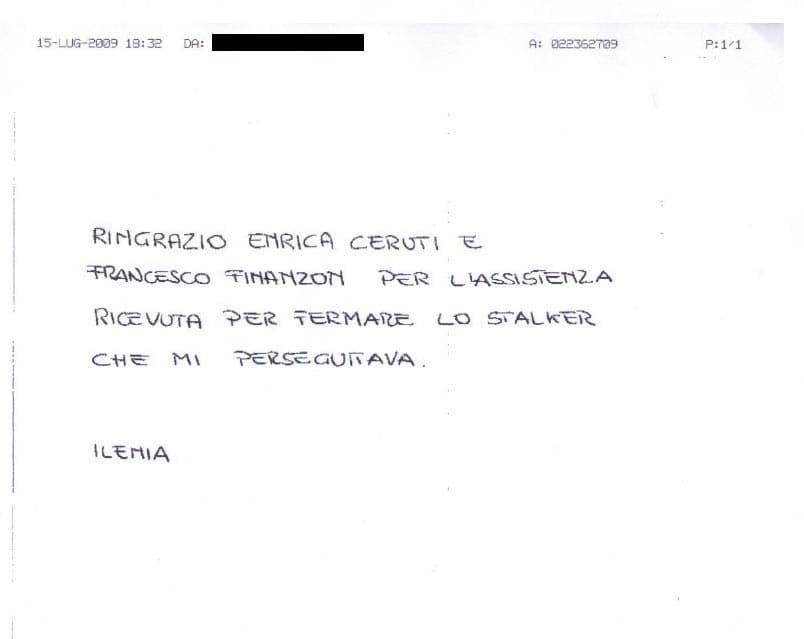 15-LUG-2009 18:32 DA: A: 022362709 P:1/1
RINGRAZIO ENRICA CERUTI E
FRANCESCO FINANZON PER L'ASSISTENZA
RICEVUTA PER FERMARE LO STALKER
CHE MI PERSEGUITAVA.
ILENIA